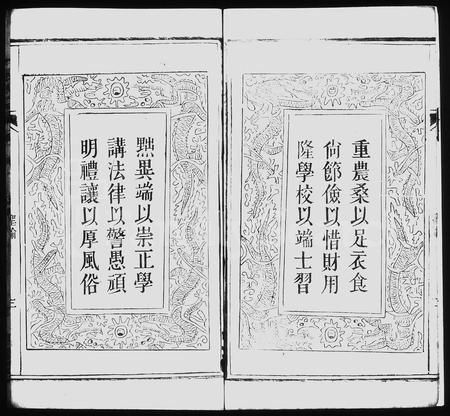 重農桑以足衣食
尙節儉以惜財用
隆學校以端士習
黜異端以崇正學
講法律以警愚頑
明禮讓以厚風俗
聖諭
三